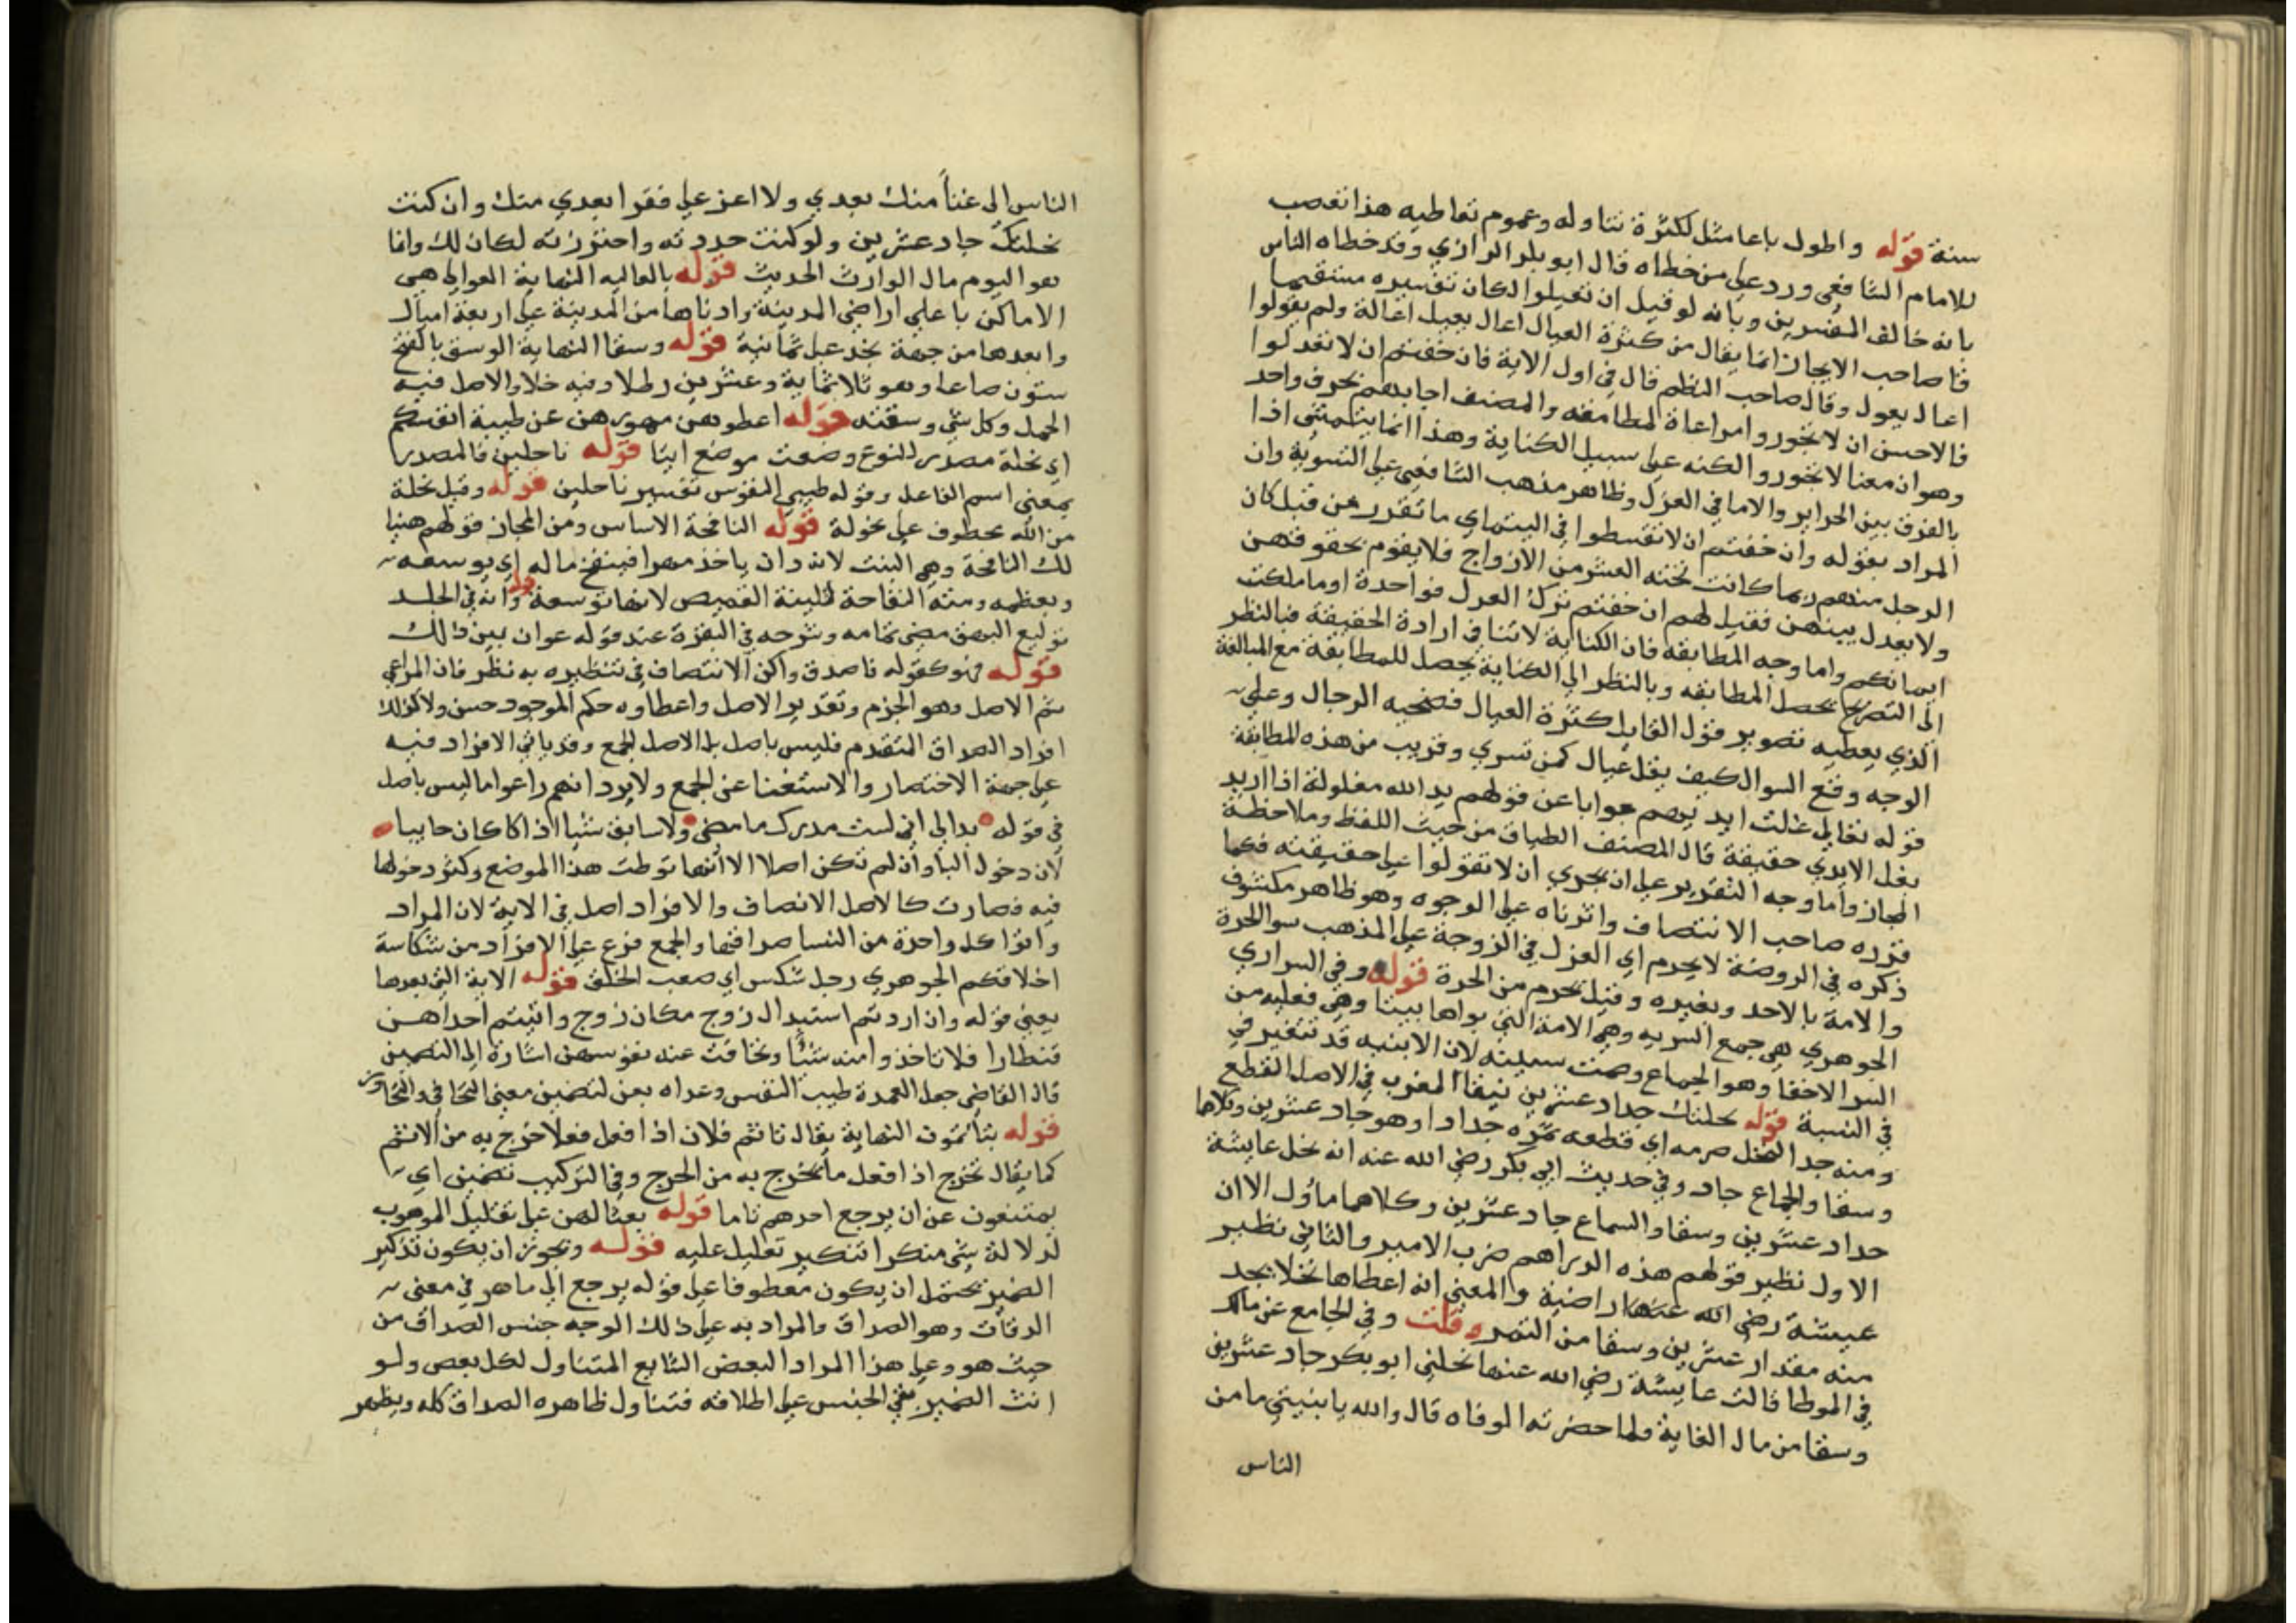 سنة قوله واطول باعا مثل لكثرة تناوله وعموم تعاطيه هذا تعصب
للامام الشافعي ورد علي من خطاه قال ابو بلر الرازي وقد خطاه الناس
بانه خالف المفسرين وبانه لو قيل ان تعيلوا لكان تفسيره مستقيما
قا صاحب الايجاز انما يقال من كثرة العيال اعال يعيل اعالة ولم يقولوا
اعال يعول وقال صاحب النظم قال في اول الاية فان خفتم ان لا تعدلوا
فالاحسن ان لا تجوروا مراعاة لمطابقه والمصنف اجابهم بحرف واحد
وهو ان معنا لا تجوروا لكنه علي سبيل الكناية وهذا انما يتمشي اذا
بالفرق بين الحراير والاما في العزل وظاهر مذهب الشافعي علي التسوية وان
المراد بقوله وان خفتم ان لا تقسطوا في اليتماي ما تقرر من قبل كان
الرجل منهم ربما كانت تحته العشر من الازواج فلا يقوم بحقوقهن
ولا يعدل بينهن فقيل لهم ان خفتم ترك العدل فواحدة او ما ملكت
ايمانكم واما وجه المطابقه فان الكناية لا تنافي ارادة الحقيقة فبالنظر
الي التصريح تحصل المطابقه وبالنظر الي الكناية يحصل للمطابقة مع المبالغة
الذي يعطيه تصوير قول القايل كثرة العيال فضحيه الرجال وعلي
الوجه وقع السوال كيف يقل عيال كمن تسري وقريب من هذه المطابقة
قوله تعالي غلت ايديهم جوابا عن قولهم يد الله مغلولة اذا اريد
بغل الايدي حقيقة قال المصنف الطباق من حيث اللفظ وملاحظة
المجاز واما وجه التقرير علي ان يجري ان لا تقولوا علي حقيقته فكما
قرره صاحب الانتصاف واثرناه علي الوجوه وهو ظاهر مكشوف
ذكره في الروضة لا يحرم اي العزل في الزوجة علي المذهب سوا الحرة
والامة بالاحد وبغيره وقيل يحرم من الحرة قوله وفي السراري
الجوهري هي جمع السريه وهي الامة التي بواها بيتا وهي فعليه من
السر الاخفا وهو الجماع وضمت سينته لان الابنيه قد تتغير في
في النسبة قوله نحلتك جداد عشرين نيفا المغرب في الاصل القطع
ومنه جد النخل صرمه اي قطعه ثمره جدادا وهو جاد عشرين وكلاها
وسقا والجماع جاد وفي حديث ابي بكر رضي الله عنه انه نحل عايشة
جداد عشرين وسقا والسماع جاد عشرين وكلاهما ماول الا ان
الاول نظير قولهم هذه الدراهم ضرب الامير والثاني نظير
عيشة رضي الله عنها راضية والمعني انه اعطاها نخلا يجد
منه مقدار عشرين وسقا من التمر وقلت وفي الجامع عن مالك
في الموطا قالت عايشة رضي الله عنها نحلني ابو بكر جاد عشرين
وسقا من مال الغابة فلما حضرته الوفاه قال والله يا بنيتي ما من
الناس
الناس الي غناً منك بعدي ولا اعز علي فقرا بعدي منك وان كنت
نحلتك جاد عشرين ولو كنت جددته واحتوزته لكان لك وانما
هو اليوم مال الوارث الحديث قوله بالعاليه النهاية العوالي هي
الاماكن باعلي اراضي المدينة وادناها من المدينة علي اربعة اميال
وابعدها من جهة نجد علي ثمانية قوله وسقا النهاية الوسق بالفتح
ستون صاعا وهو ثلاثماية وعشرين رطلا وفيه خلا والاصل فيه
الحمل وكل شي وسقته قوله اعطوهن مهورهن عن طيبة انفسكم
اي نحلة مصدر للنوع وضعت موضع ايتا قوله ناحلين فالمصدرا
بمعني اسم الفاعل وقوله طيبي النفوس تفسير ناحلين قوله وقيل نحلة
من الله عطوف علي نحولة قوله النافجة الاساس ومن المجاز قولهم هنيا
لك النافجة وهي البنت لانه دان ياخذ مهرا فينفج ماله اي يوسعه
ويعظمه ومنه النفاجة للبينة القميص لانها توسعة قوله وانه في الجلد
توليع البهق مضي تمامه وشرحه في البقرة عند قوله عوان بين ذالك
قوله فهو كقوله فاصدق واكن الانتصاف في تنظيره به نظر فان المراعي
ثم الاصل وهو الجزم وتقدير الاصل واعطاوه حكم الموجود حسن ولا كذلك
افراد الصداق المتقدم فليس باصل بل الاصل الجمع وقد ياتي الافراد فيه
علي جهة الاختصار والاستغنا عن الجمع ولا يرد انهم راعوا ما ليس باصل
في قوله بدا لي اني لست مدرك ما مضي ولا سابق شيا اذا كان جاييا
لان دخول البا وان لم تكن اصلا الا انها توطت هذا الموضع وكثر دخولها
فيه فصارت كالاصل الانصاف والافراد اصل في الاية لان المراد
واتوا كل واحدة من النسا صداقها والجمع فرع علي الافراد من شكاسة
اخلاقكم الجوهري رجل شكس اي صعب الخلق قوله الاية التي بعدها
يعني قوله وان اردتم استبدال زوج مكان زوج واتيتم احداهن
قنطارا فلا تاخذوا منه شيئاً وتخافت عنه نفوسهن اشارة الي التضمين
قال القاضي جعل العمدة طيب النفس وعداه بعن لتضمين معني التجافي والتجاوز
قوله يتاثمون النهاية يقال تاثم فلان اذا فعل فعلا خرج به من الاثم
كما يقال تحرج اذا فعل ما يخرج به من الحرج وفي التركيب تضمين اي
يمتنعون عن ان يرجع احدهم ناما قوله بعثا لهن علي تقليل الموهوب
لدلالة شي منكرا تنكير تعليل عليه قوله ويجوز ان يكون تذكير
الضمير يحتمل ان يكون معطوفا علي قوله يرجع الي ما هر في معني
الدقات وهو الصداق والمراد به علي ذلك الوجه جنس الصداق من
حيث هو وعلي هذا المراد البعض الشايع المتناول لكل بعض ولو
انث الضمير بقي الجنس علي اطلاقه فتناول ظاهره الصداق كله ويظهر